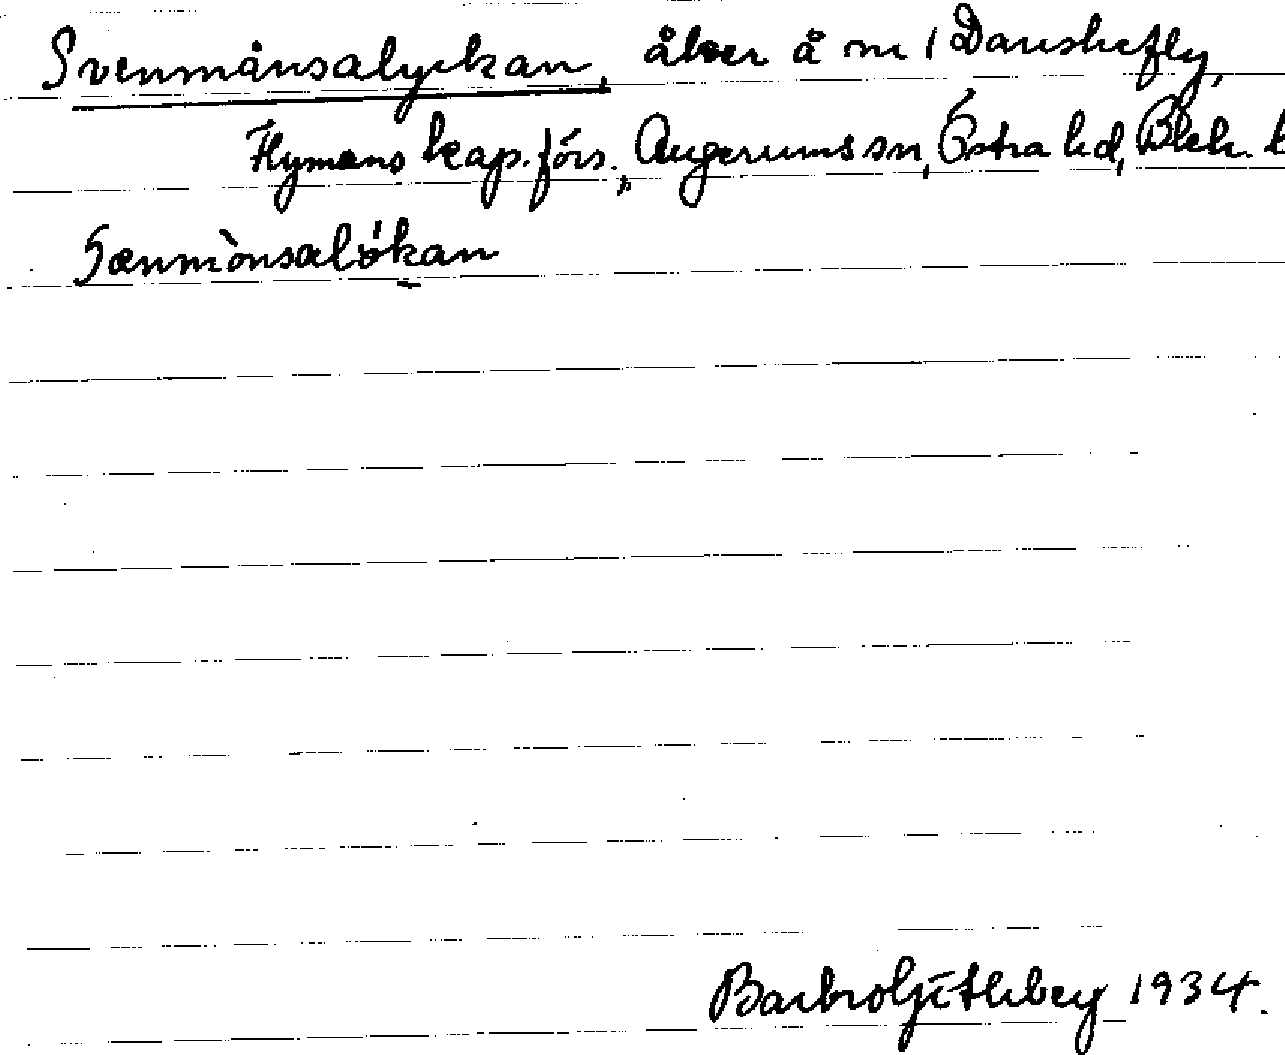 Svenmånsalyckan, åker å nr 1 Danskefly,
Flymens kap. förs., Augerums sn, Östra hd, Blek. l
Sænmònsalókan
Barbro 1934.